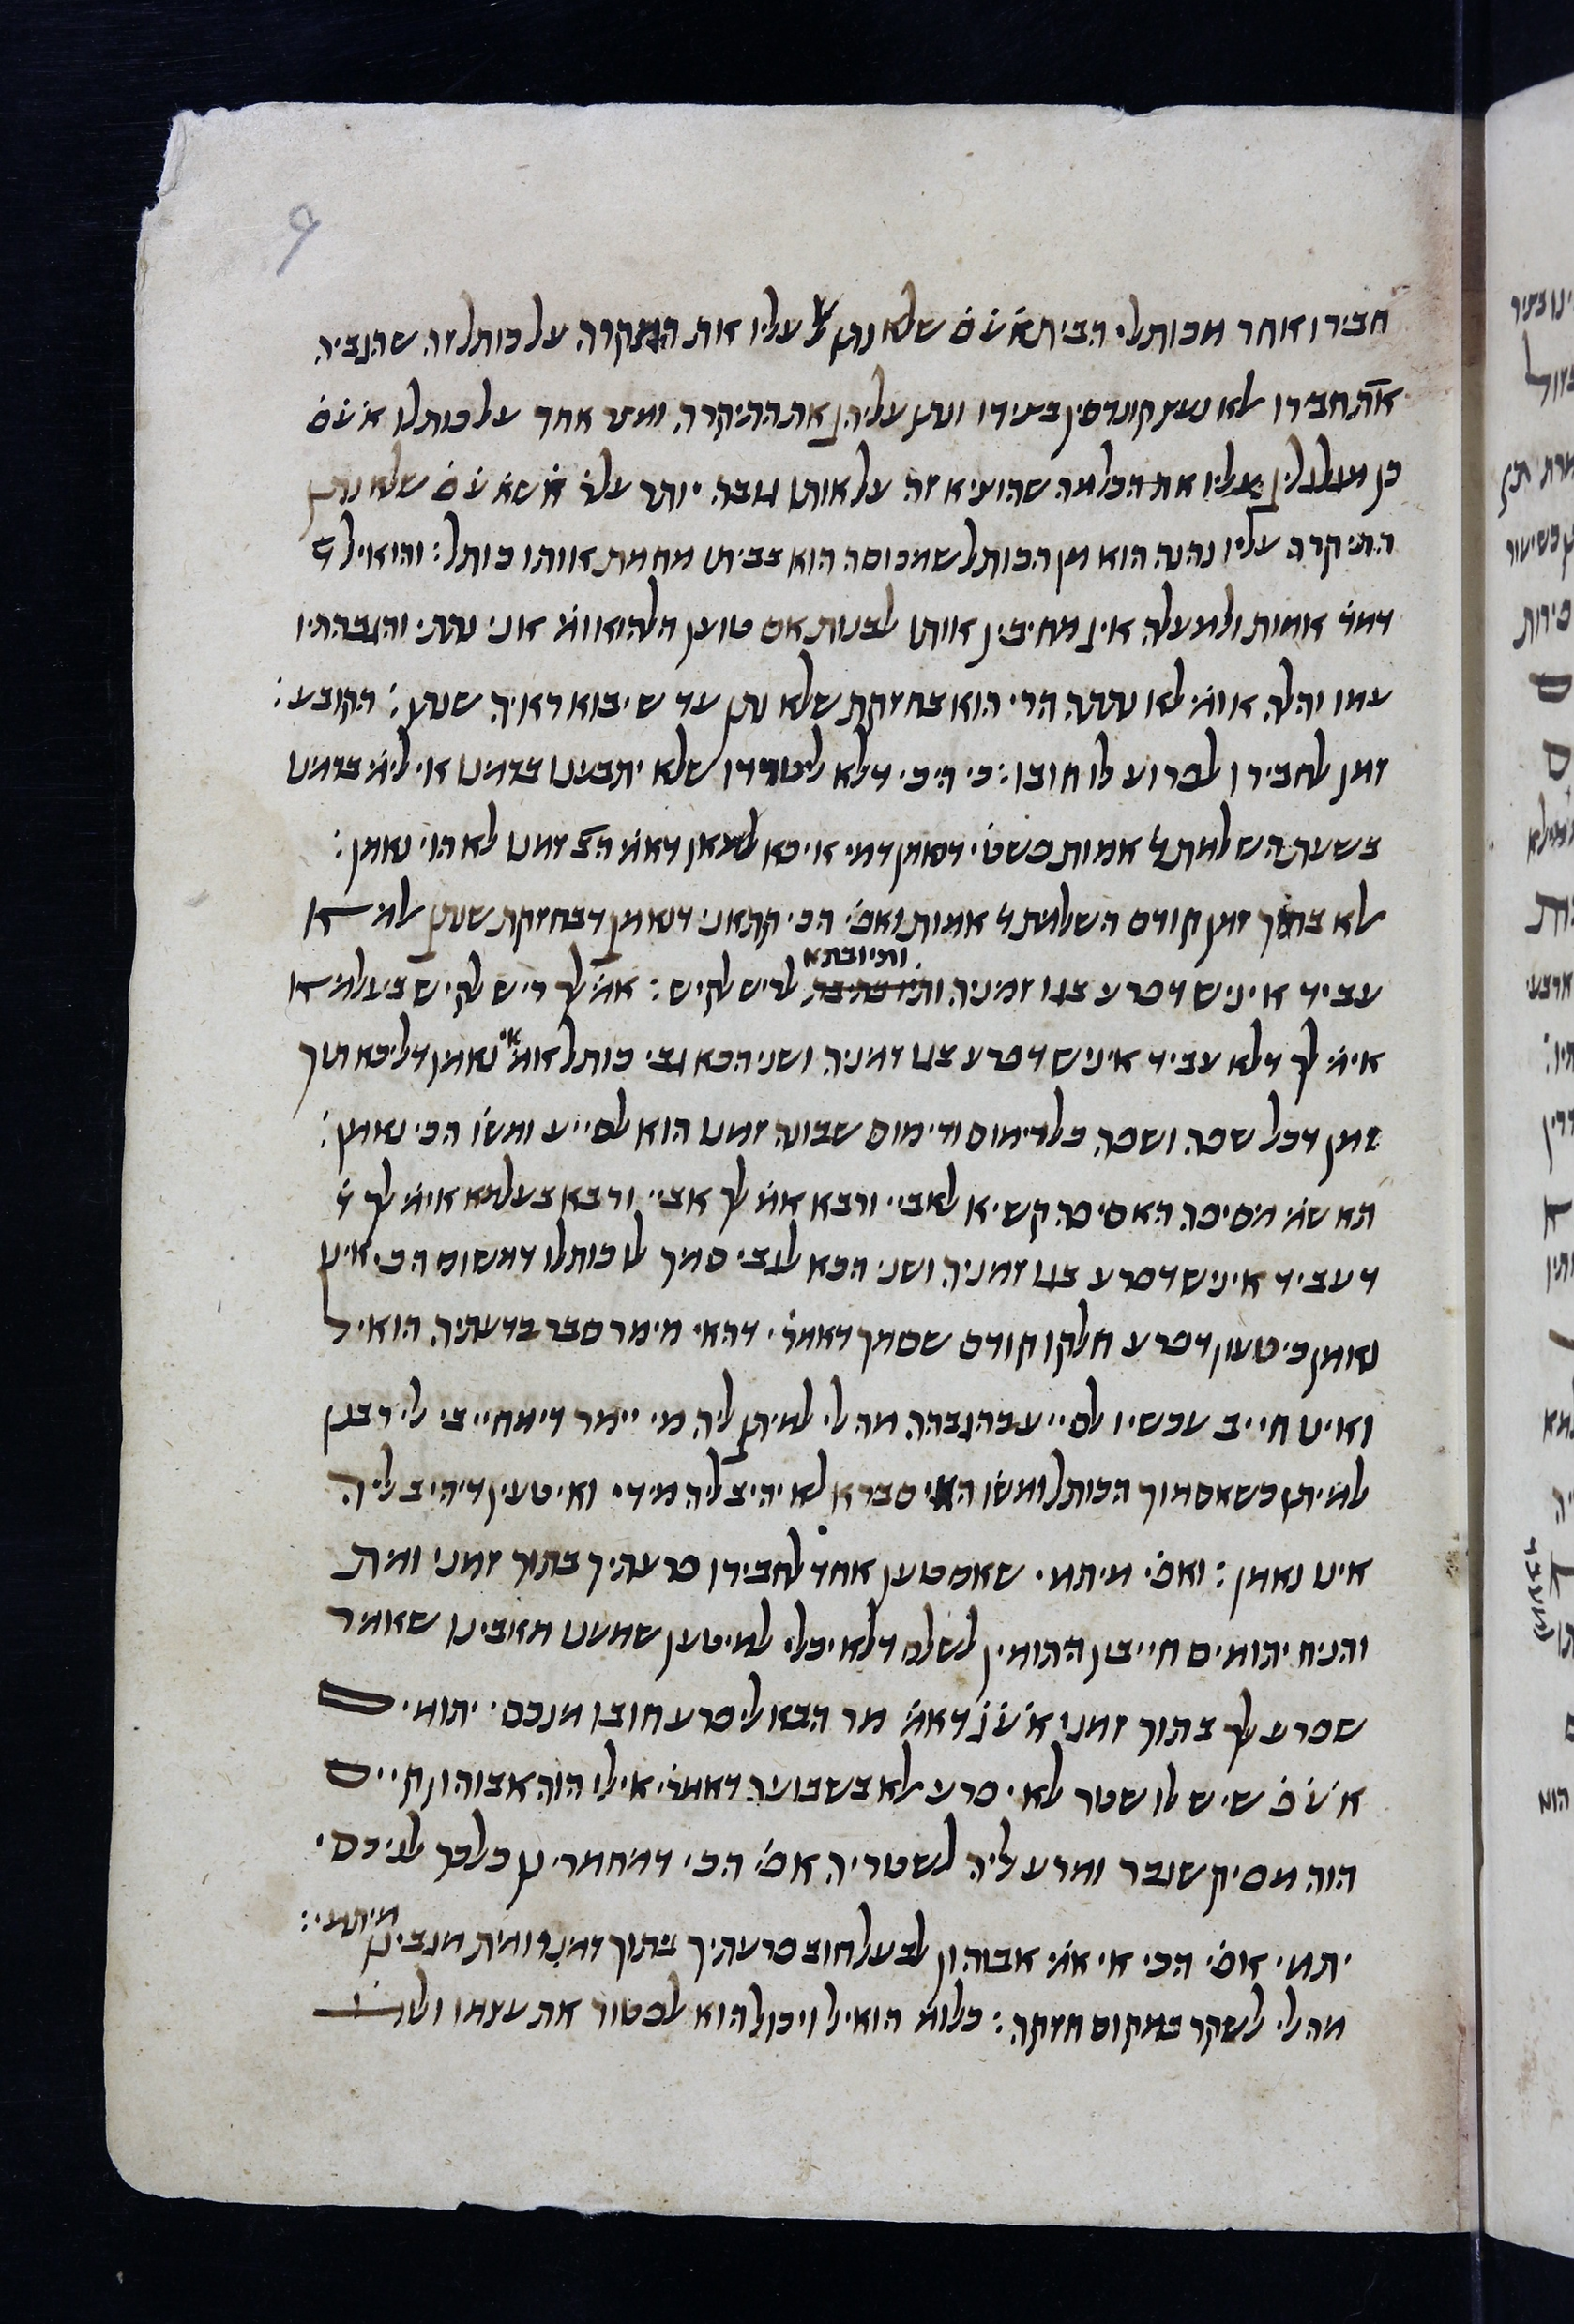 חבירו אחר מכותלי הבית אׄעׄפׄ שלא נתן עליו את התקרה על כותל זה שהגביה
את חבירו לא נעץ קונדסין בצידו ונתן עליהן את התיקרה ומצד אחד על כותלו אׄעׄפׄ
כן מגלגלין עליו את הכל מה שהוציא זה על אותו גובה יותר על דׄ אׄ שאׄעׄפׄ שלא נתן
התיקרה עליו נהנה הוא מן הכותל שמכוסה הוא בבית מחמת אותו כותל : והואיל דׄ
דמדׄ אמות ולמעלה אין מחייבין אותו לבנות אם טוען הלה ואומׄ אני נתתי והגבהתיו
עמו והלה אומׄ לא נתתה הרי הוא בחזקת שלא נתן עד שיבוא ראיה שנתן : הקובע :
זמן לחבירו לפרוע לו חובו : כי היכי דלא ליטרדו שלא יתבענו בזמנו אי ליתׄ בזמנו
בשעת השלמת דׄ אמות פשטׄ דסומן דמי איכא למאן דאמׄ הצׄ זמנו לא הוי נאמן :
לא בתוך זמן קודם השלמת דׄ אמות ואפׄ הכי קתאני דנאמן דבחזקת שנתן למׄ א
ותיובתא
עביד איניש דפרע בגו זימניה לריש לקיש : אמׄ לך ריש לקיש בעלמׄ א
אימׄ לך דלא עביד איניש דפרע בגו זמניה ושני הכא גבי כותל אמׄ אי נאמן דליכא תוך
זמן דכל שפה ושפה כל דימוס ודימוס שבונה זמנו הוא לסייע ומשׄו הכי נאמן :
תא שמׄ מסיפה הא סיפה קשיא לאביי ורבא אמׄ לך אביי ורבא בעלמא אימׄ לך דׄ
דעביד איניש דפרע בגו זמניה ושני הכא לגבי סמך לו כותלו דמשום הכי אינו
נאמן כי טעון דפרע חלקו קודם שסמך דאמרׄי דהאי מימר סבר בדעתיה הואיל
ואינו חייב עכשיו לסייע בהגבהה מה לי למיתן ליה מי יימר דימחייבי לי רבנן
למיתן כשאסמוך הכותל ומשׄו האי סברא לא יהיב ליה מידי ואי טעין דיהיב ליה
אינו נאמן : ואפׄי מיתמי שאם טוען אחד לחבירו פרעתיך בתוך זמני ומת
והניח יתומים חייבין היתומין לשלם דלא יכלי למיטען שמענו מאבינו שאמר
שפרע לך בתוך זמני אׄעׄגׄ דאמׄ מר הבא ליפרע חובו מנכסי יתומים
אׄעׄפׄ שיש לו שטר לא יפרע אלא בשבועה דאמרׄי אילו הוה אבוהון קיים
הוה מסיק שובר ומרע ליה לשטריה אפׄי הכי דמחמרינן כל כך לניכסי
יתמי אפׄי הכי אי אמׄ אבוהון לבעל חוב פרעתיך בתוך זמני ומית מגבינן מיתמי :
מה לי לשקר במקום חזקה : כלומׄ הואיל ויכול הוא לפטור את עצמו ולומׄ